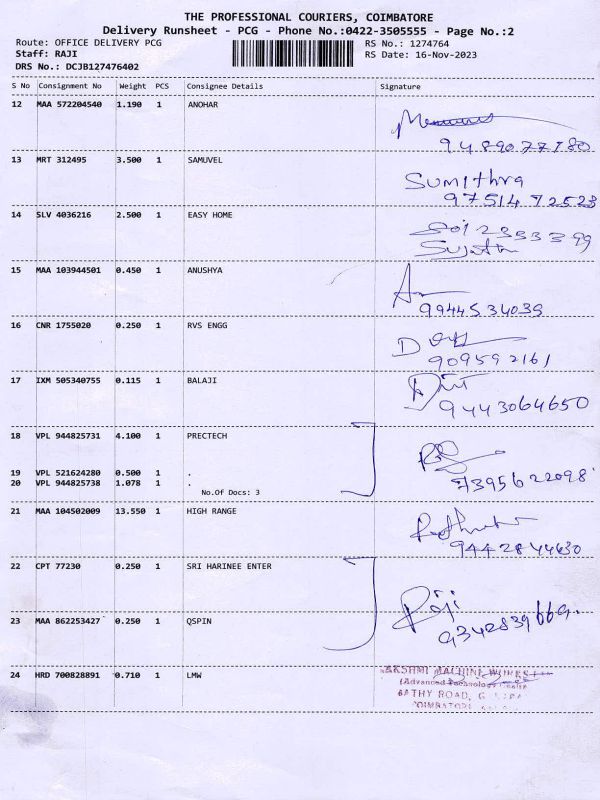 THE PROFESSIONAL COURIERS, COIMBATORE
Delivery Runsheet - PCG - Phone No.:0422-3505555 - Page No.:2
Route: OFFICE DELIVERY PCG
RS No.: 1274764
Staff: RAJI
RS Date: 16-Nov-2023
DRS No.: DCJB127476402
S No Consignment No Weight PCS Consignee Details Signature
12 MAA 572204540 1.190 1 ANOHAR
9489077180
13 MRT 312495 3.500 1 SAMUVEL
Sumithra
9751472523
14 SLV 4036216 2.500 1 EASY HOME
Sujatha
15 MAA 103944501 0.450 1 ANUSHYA
9944534039
16 CNR 1755020 0.250 1 RVS ENGG
909592161
17 IXM 505340755 0.115 1 BALAJI
9443064650
18 VPL 944825731 4.100 1 PRECTECH
19 VPL 521624280 0.500 1 .
20 VPL 944825738 1.078 1 .
No.Of Docs: 3
7395622098
21 MAA 104502009 13.550 1 HIGH RANGE
9442844630
22 CPT 77230 0.250 1 SRI HARINEE ENTER
Raji
23 MAA 862253427 0.250 1 QSPIN
9342839669.
24 HRD 700828891 0.710 1 LMW
LAKSHMI MACHINE WORKS
(Advanced Technology
ATHY ROAD,
COIMBATORE